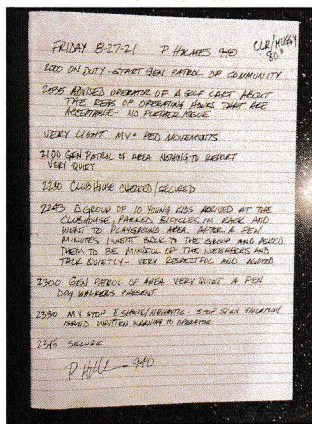 FRIDAY 8-27-21 P HOLMES 940 CLR/MUGGY
80°
2000 ON DUTY - START GEN PATROL OF COMMUNITY
2025 ADVISED OPERATOR OF A GOLF CART ABOUT
THE REGS OF OPERATING HOURS THAT ARE
ACCEPTABLE - NO FURTHER ISSUE
VERY LIGHT MV + PED MOVEMENTS
2100 GEN PATROL OF AREA NOTHING TO REPORT
VERY QUIET
2230 CLUBHOUSE CHECKED/SECURED
2243 A GROUP OF 10 YOUNG KIDS ARRIVED AT THE
CLUBHOUSE, PARKED BICYCLES IN RACK AND
WENT TO PLAYGROUND AREA. AFTER A FEW
MINUTES I WENT BACK TO THE GROUP AND ASKED
THEM TO BE MINDFUL OF THE NEIGHBORS AND
TALK QUIETLY - VERY RESPECTFUL AND AGREED
2300 GEN PATROL OF AREA VERY QUIET A FEW
DOG WALKERS PRESENT
2330 MV STOP - STOP SIGN VIOLATION/
ISSUED WRITTEN WARNING TO OPERATOR
2345 SECURE
940